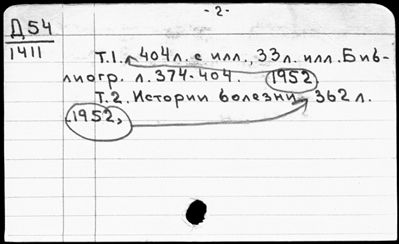 -2-
Д54
1411
Т.1. 404 л. с илл., 33 л. илл. Биб-
лиогр. л. 374-404. 1952
Т.2. Истории болезни 362 л.
1952,